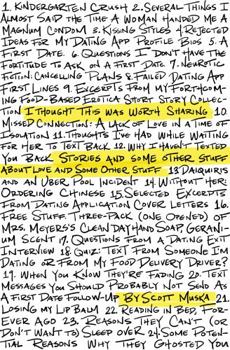 1. KINDERGARTEN CRUSH 2. SEVERAL THINGS I
ALMOST SAID THE TIME A WOMAN HANDED ME A
MAGNUM CONDOM 3. KISSING STYLES 4 REJECTED
IDEAS FOR MY DATING APP PROFILE BIOS 5. A
FIRST DATE 6. QUESTIONS I DON'T HAVE THE
FORTITUDE TO ASK ON A FIRST DATE 7. NEUROTIC
FICTION: CANCELLING PLANS 8. FAILED DATING APP
FIRST LINES 9. EXCERPTS FROM MY FORTHCOM-
ING FOOD-BASED EROTICA SHORT STORY COLLEC-
TION I THOUGHT THIS WAS WORTH SHARING 10.
MISSED CONNECTION: A LACK OF LOVE IN A TIME OF
ISOLATION 11. THOUGHTS I'VE HAD WHILE WAITING
FOR HER TO TEXT BACK 12. WHY I HAVEN'T TEXTED
YOU BACK STORIES AND SOME OTHER STUFF
ABOUT LOVE AND SOME OTHER STUFF 13. DAIQUIRIS
AND AN UBER POOL INCIDENT 14. WITHOUT HER
ORDERING CHINESE 15. SELECTED EXCERPTS
FROM DATING APPLICATION COVER LETTERS 16.
FREE STUFF: THREE-PACK (ONE OPENED) OF
MRS. MEYERS'S CLEAN DAY HAND SOAP, GERANI-
UM SCENT 17. QUESTIONS FROM A DATING EXIT
INTERVIEW 18. QUIZ: TEXT FROM SOMEONE I'M
DATING OR FROM MY FOOD DELIVERY DRIVER?
19. WHEN YOU KNOW THEY'RE FADING 20. TEXT
MESSAGES YOU SHOULD PROBABLY NOT SEND AS
A FIRST DATE FOLLOW-UP BY SCOTT MUSKA 21.
LOSING MY LIP BALM 22. READING IN BED, FOR-
EVER AGO 23. REASONS THEY CAN'T (OR
DON'T WANT TO) SLEEP OVER 24. SOME POTEN-
TIAL REASONS WHY THEY GHOSTED YOU